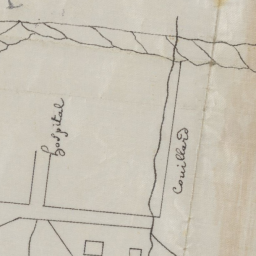 hospital
Couillard